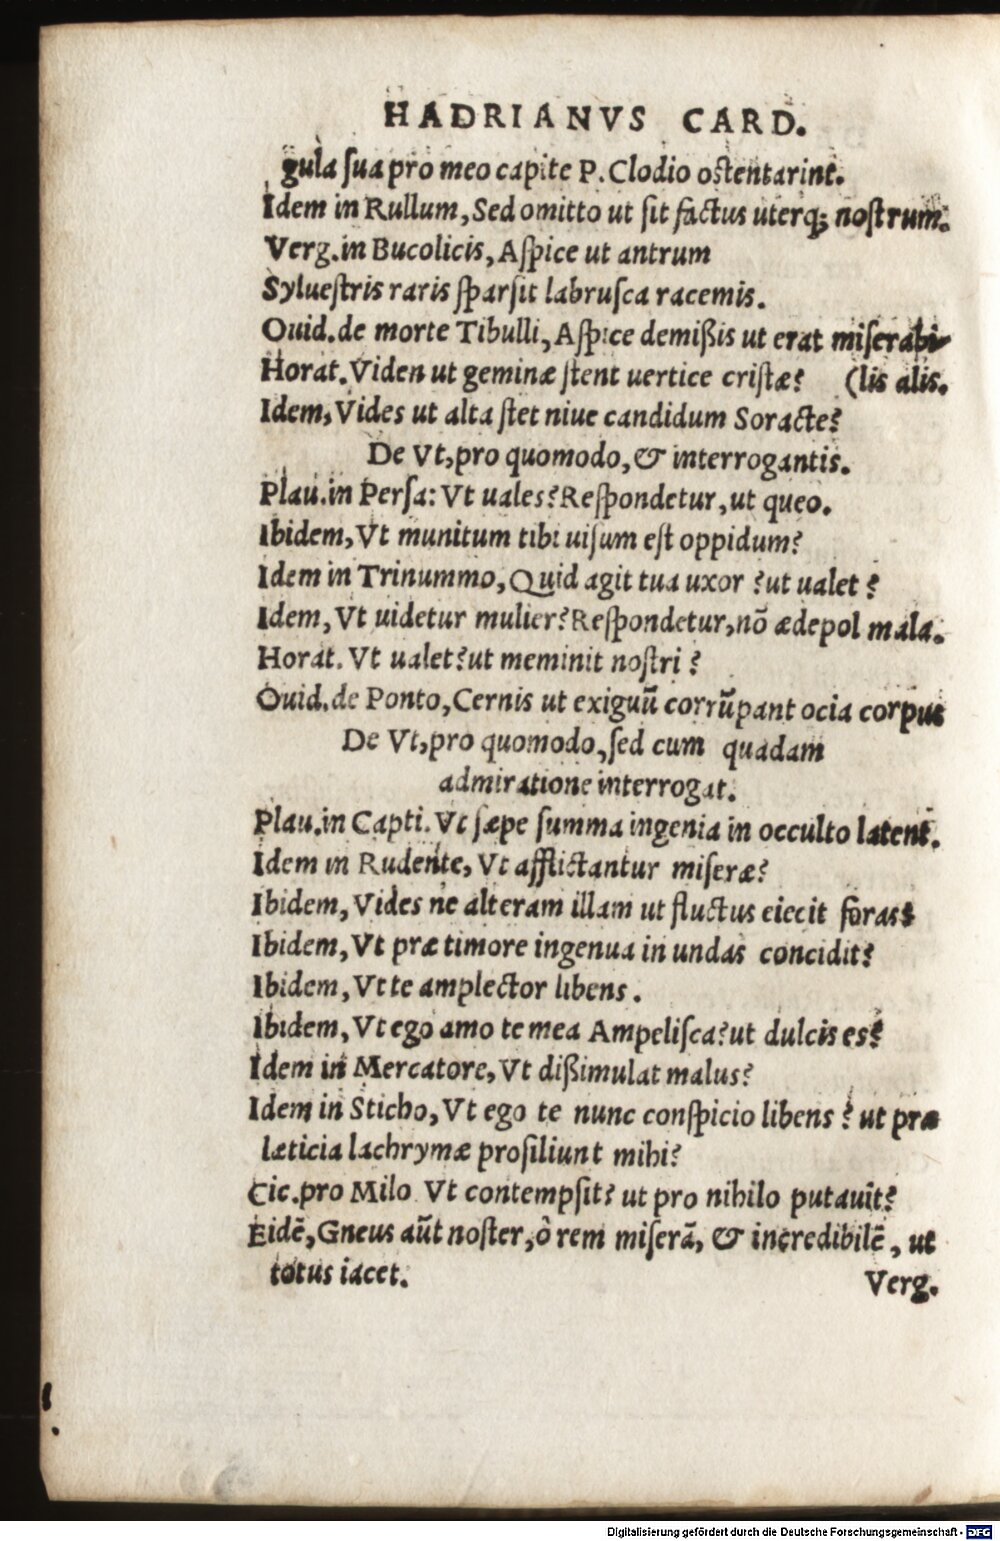 HADRIANVS CARD.
gula ſua pro meo capite P. Clodio oſtentarint.
Idem in Rullum, Sed omitto ut ſit factus uterq; noſtrum.
Verg. in Bucolicis, Aſpice ut antrum
Sylueſtris raris ſparſit labruſca racemis.
Ouid. de morte Tibulli, Aſpice demißis ut erat miſerabi-
Horat. Viden ut geminæ ſtent uertice criſtæ? (lis alis.
Idem, Vides ut alta ſtet niue candidum Soracte?
De Vt, pro quomodo, & interrogantis.
Plau. in Perſa: Vt uales? Reſpondetur, ut queo.
Ibidem, Vt munitum tibi uiſum eſt oppidum?
Idem in Trinummo, Quid agit tua uxor? ut ualet?
Idem, Vt uidetur mulier? Reſpondetur, nõ ædepol mala.
Horat. Vt ualet? ut meminit noſtri?
Ouid. de Ponto, Cernis ut exiguũ corrũpant ocia corpus
De Vt, pro quomodo, ſed cum quadam
admiratione interrogat.
Plau. in Capti. Vt ſæpe ſumma ingenia in occulto latent.
Idem in Rudente, Vt afflictantur miſeræ?
Ibidem, Vides ne alteram illam ut fluctus eiecit foras?
Ibidem, Vt præ timore ingenua in undas concidit?
Ibidem, Vt te amplector libens.
Ibidem, Vt ego amo te mea Ampeliſca? ut dulcis es?
Idem in Mercatore, Vt dißimulat malus?
Idem in Sticho, Vt ego te nunc conſpicio libens? ut præ
læticia lachrymæ proſiliunt mihi?
Cic. pro Milo Vt contempſit? ut pro nihilo putauit?
Eidẽ, Gneus aũt noſter, ô rem miſerã, & incredibilẽ, ut
totus iacet.
Verg.
Digitalisierung gefördert durch die Deutsche Forschungsgemeinschaft - DFG